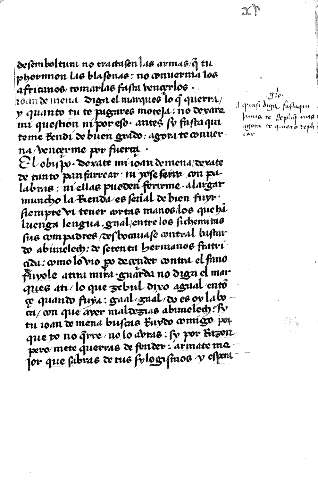 desemboltura no tractasen las armas q̃ tu
phormion las blasonas: no conuernia los
africanos tomarlas fasta vençerlos.
Joan de mena diga el marques lo q̃ querra/
y quanto tu te pagares moteja: no dexare
mi question ni por eso. antes sy fasta qui
tome Rendi de buen grado: agora te conuer
na vençerme por fuerça.
El obispo. dexate mi ioan de mena/ dexate
de tanto panfarrear. ni pose ferir con pa
labras: ni ellas pueden ferirme. alargar
muncho la Rienda/ es señal de bien fuyr.
siempre vi tener cortas manos los que ha
luenga lengua. gual entre los sichemitas
sus compadres/ desbocauase contra el bastar
do abimelech: de setenta hermanos fratri
cida: como lo vio po deçender contra el
atini mira: guarda no diga el mar
ques ati. lo que zebul dixo a gual ento
çe quando fuya: gual. gual. do es oy la bo
ca/ con que ayer maldezias abimelech. Sy
tu ioan de mena buscas Ruydo comigo por
que yo no q̃rre. no lo abras: sy por Razon
pero mete querras defender: armate me
jor que sabras de tus sylogismos. y espera
glo.
quasi diga fasta qui